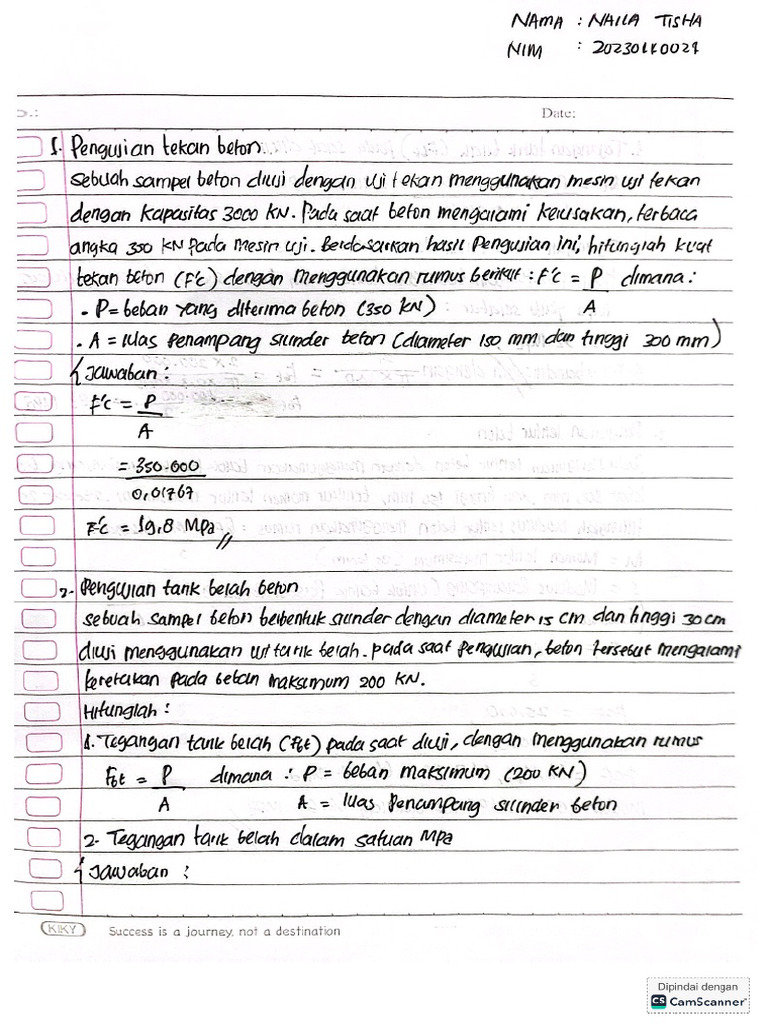 NAMA : NAILA TISHA
NIM : 20230110021
Date:
1. Pengujian tekan beton
sebuah sampel beton diuji dengan uji tekan menggunakan mesin uji tekan
dengan kapasitas 3000 kN. Pada saat beton mengalami kerusakan, terbaca
angka 350 kN pada mesin uji. Berdasarkan hasil Pengujian ini, hitunglah kuat
tekan beton (F'c) dengan menggunakan rumus berikut : F'c = P dimana :
- P = beban yang diterima beton (350 kN) A
- A = luas penampang silinder beton (diameter 150 mm dan tinggi 300 mm)
Jawaban :
F'c = P
A
= 350.000
0,01767
F'c = 19,8 MPa //
2. Pengujian tarik belah beton
sebuah sampel beton berbentuk silinder dengan diameter 15 cm dan tinggi 30 cm
diuji menggunakan uji tarik belah. pada saat pengujian, beton tersebut mengalami
keretakan pada beban maksimum 200 KN.
Hitunglah :
1. Tegangan tarik belah (fbt) pada saat diuji, dengan menggunakan rumus
Fbt = P dimana : P = beban maksimum (200 KN)
A A = luas penampang silinder beton
2. Tegangan tarik belah dalam satuan MPa
Jawaban :
KIKY Success is a journey, not a destination
Dipindai dengan
CS CamScanner